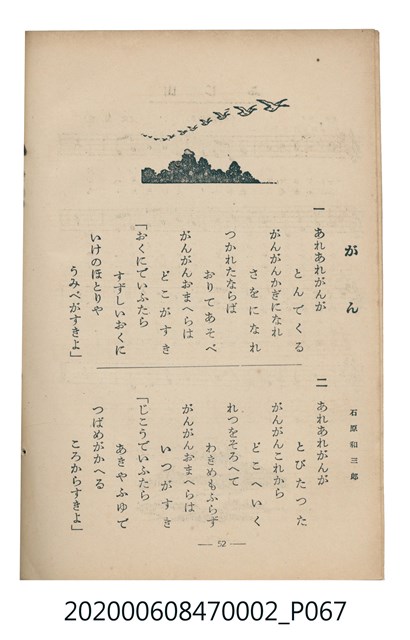 がん
石原和三郎
一 あれあれがんが
とんでくる
がんがんかぎになれ
さをになれ
つかれたならば
おりてあそべ
がんがんおまへらは
どこがすき
「おくにでいふたら
すずしいおくに
いけのほとりや
うみべがすきよ」
二 あれあれがんが
とびたつた
がんがんこれから
どこへいく
れつをそろへて
わきめもふらず
がんがんおまへらは
いつがすき
「じこうでいふたら
あきやふゆで
つばめがかへる
ころからすきよ」
— 52 —
202000608470002_P067